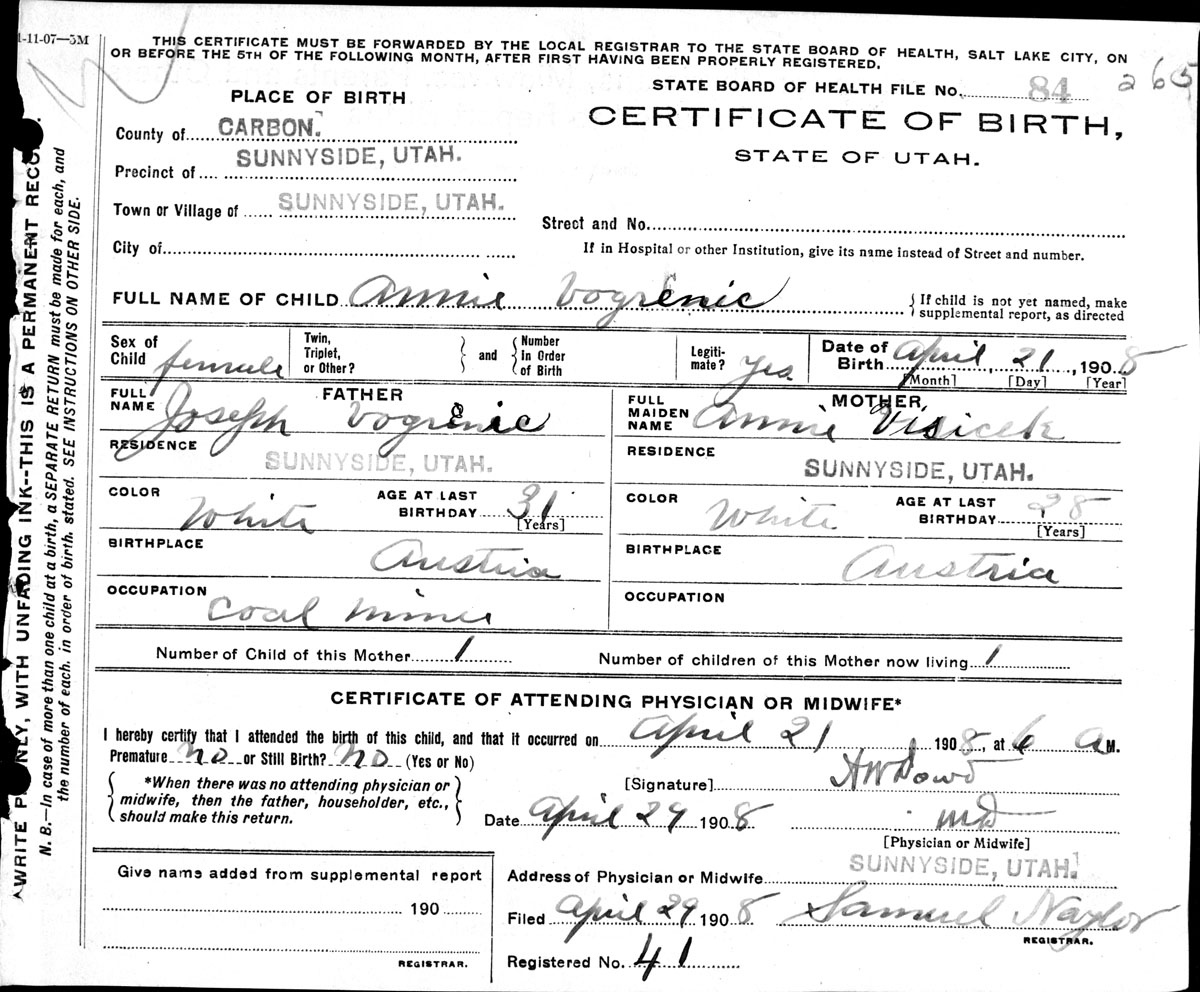 1-11-07—3M
THIS CERTIFICATE MUST BE FORWARDED BY THE LOCAL REGISTRAR TO THE STATE BOARD OF HEALTH, SALT LAKE CITY, ON
OR BEFORE THE 5TH OF THE FOLLOWING MONTH, AFTER FIRST HAVING BEEN PROPERLY REGISTERED.
STATE BOARD OF HEALTH FILE No. 84 265
PLACE OF BIRTH
CERTIFICATE OF BIRTH,
STATE OF UTAH.
County of CARBON.
Precinct of SUNNYSIDE, UTAH.
Town or Village of SUNNYSIDE, UTAH.
Street and No.
City of
If in Hospital or other Institution, give its name instead of Street and number.
FULL NAME OF CHILD Annie Vogrenic
{ If child is not yet named, make
supplemental report, as directed
Sex of
Child female
Twin,
Triplet,
or Other? } and { Number
In Order
of Birth
Legiti-
mate? Yes
Date of
Birth April 21, 1908
[Month] [Day] [Year]
FATHER
FULL
NAME Joseph Vogrenic
MOTHER
FULL
MAIDEN
NAME Annie Visicek
RESIDENCE SUNNYSIDE, UTAH.
RESIDENCE SUNNYSIDE, UTAH.
COLOR White
AGE AT LAST
BIRTHDAY 31
[Years]
COLOR White
AGE AT LAST
BIRTHDAY 28
[Years]
BIRTHPLACE Austria
BIRTHPLACE Austria
OCCUPATION Coal Miner
OCCUPATION
Number of Child of this Mother 1
Number of children of this Mother now living 1
CERTIFICATE OF ATTENDING PHYSICIAN OR MIDWIFE*
I hereby certify that I attended the birth of this child, and that it occurred on April 21 1908, at 6 A M.
Premature No or Still Birth? No (Yes or No)
{ *When there was no attending physician or
midwife, then the father, householder, etc.,
should make this return. }
[Signature] H W Dowd
Date April 29 1908 MD
[Physician or Midwife]
Give name added from supplemental report
190
REGISTRAR.
Address of Physician or Midwife SUNNYSIDE, UTAH.
Filed April 29 1908 Samuel Naylor
REGISTRAR.
Registered No. 41
WRITE ONLY, WITH UNFADING INK--THIS IS A PERMANENT RECO
N. B.—In case of more than one child at a birth, a SEPARATE RETURN must be made for each, and
the number of each, in order of birth, stated. SEE INSTRUCTIONS ON OTHER SIDE.